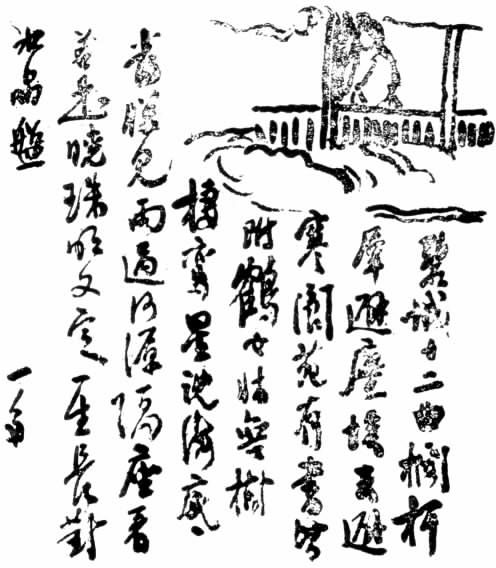 碧城十二曲欄杆
犀避塵埃玉避
寒閬苑有書多
附鶴女牀無樹
棲鸞星沈海底
當牕見雨過河源隔座看
若是曉珠明又定一生長對
水晶盤